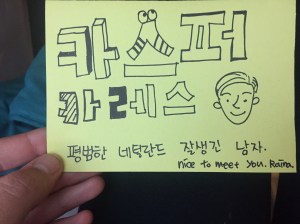 카스퍼
카레스
평범한 네덜란드 잘생긴 남자.
nice to meet you. Raina.